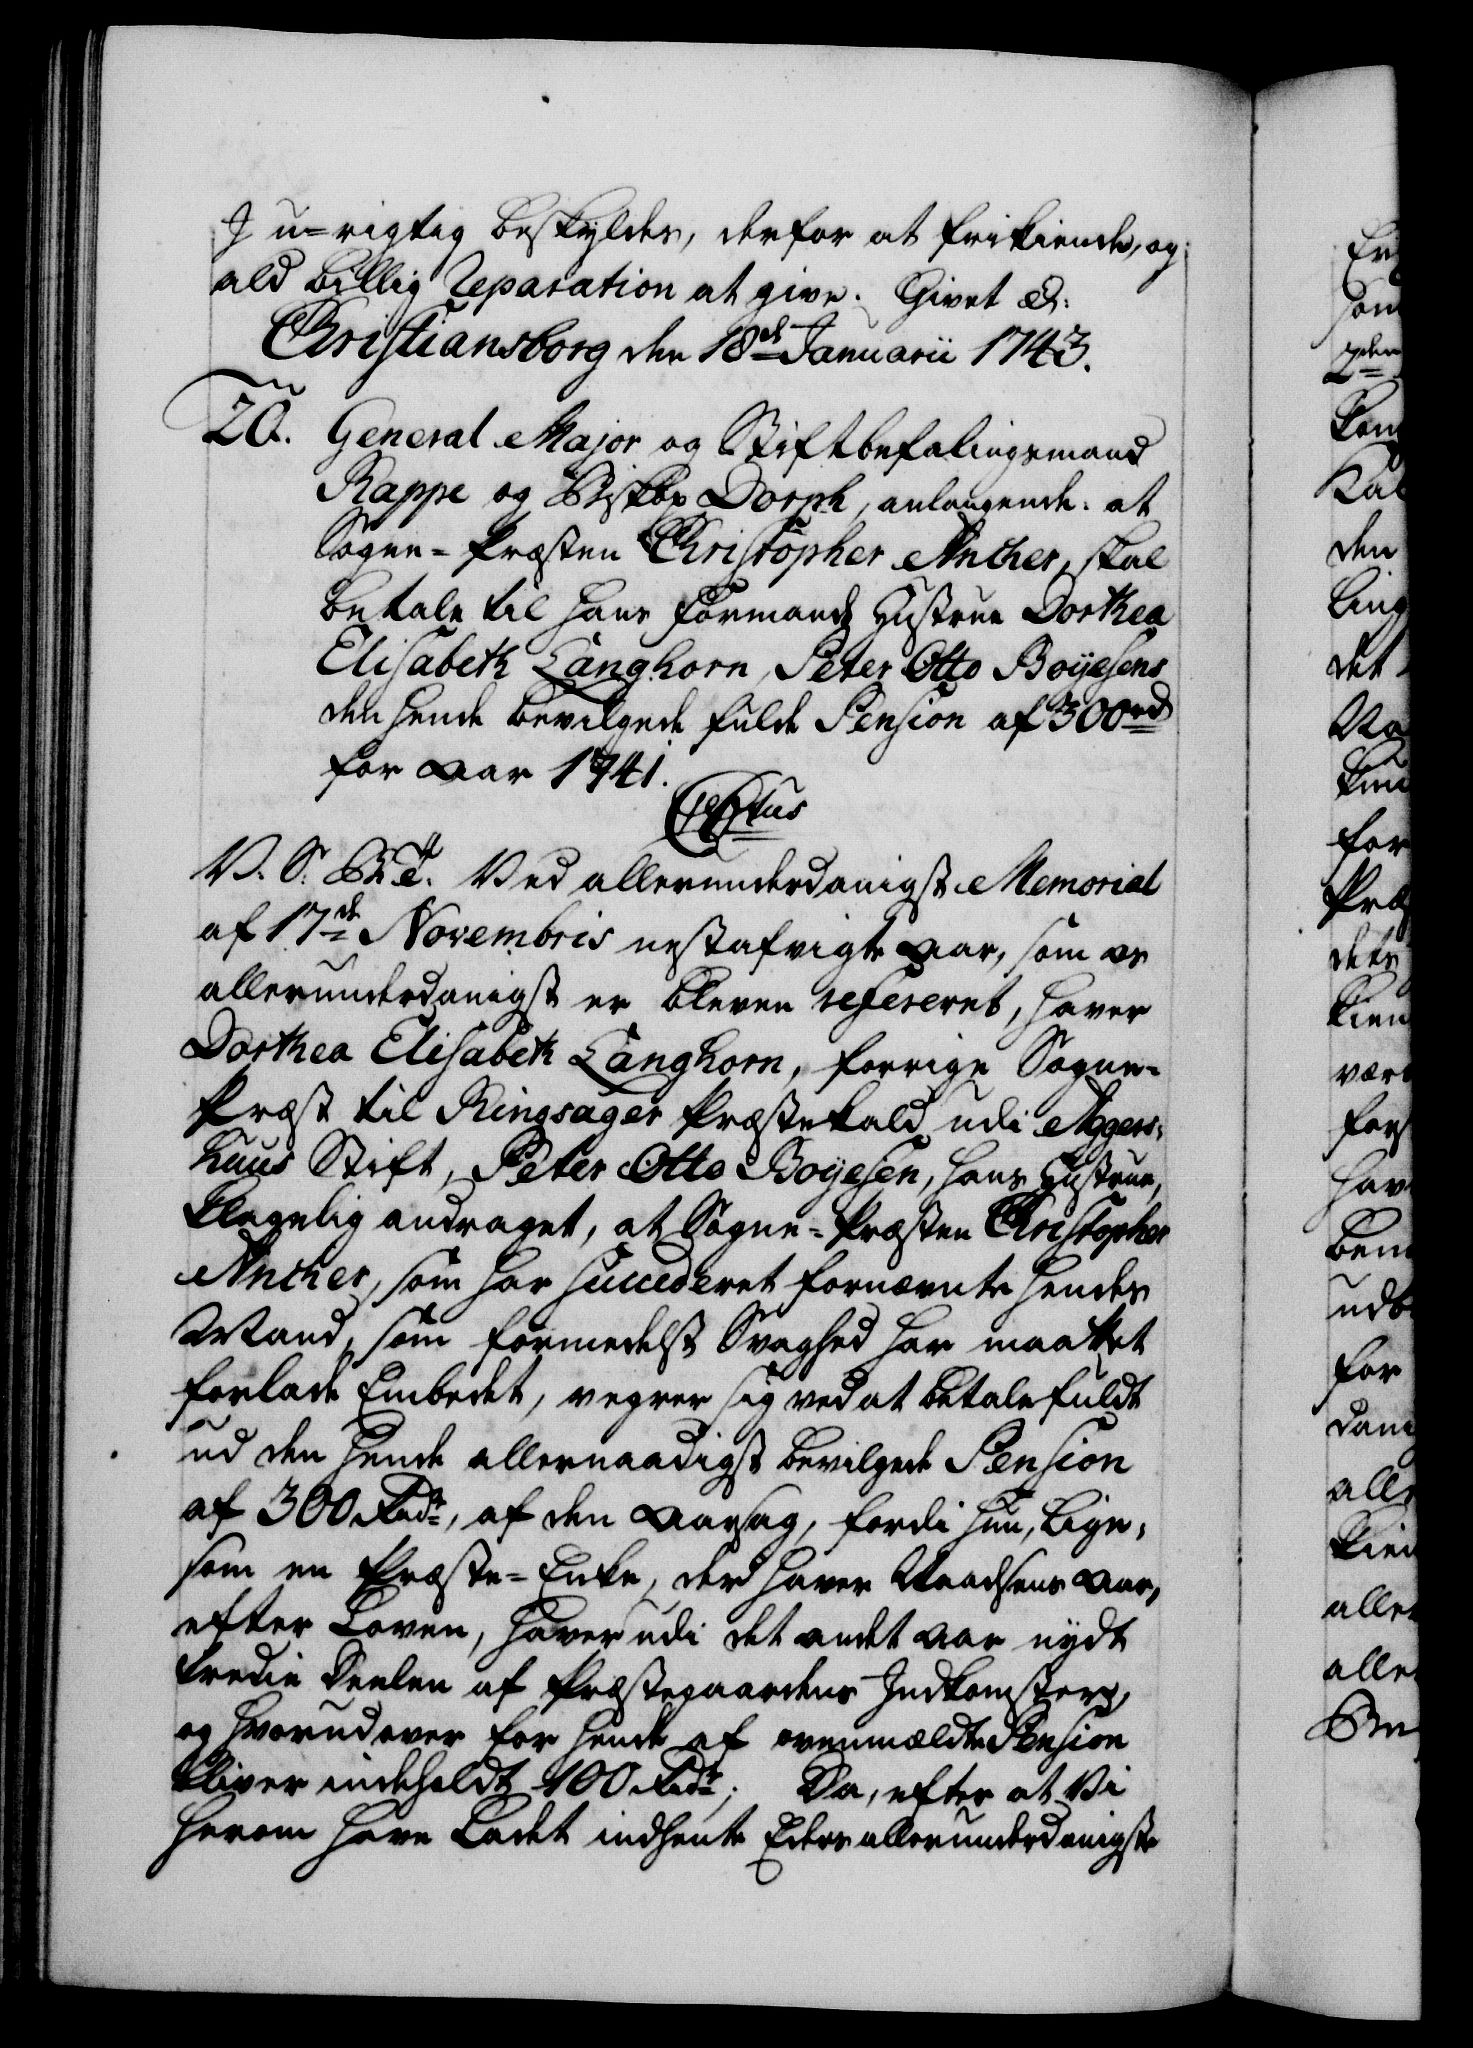 J u-rigtig beskyldes, derfor at frikiende, og
ald billig Reparation at give. Givet &:
Christiansborg den 18de Januarii 1743.
20. General Major og Stiftbefalingsmand
Rappe og Biskop Dorph, anlangende: at
Sogne-Præsten Christopher Ancher, skal
betale til hans Formands Hustrue Dorthea
Elisabeth Langhorn, Peter Otto Boÿesens
den hende bevilgede fulde Pension af 300rd
for Aar 1741.
V. S. G. T. Ved allerunderdanigst Memorial
af 17de Novembris nestafvigte Aar, som os
allerunderdanigst er bleven refereret, haver
Dorthea Elisabeth Langhorn, forrige Sogne-
Præst til Ringsager Præstekald udi Aggers-
huus Stift, Peter Otto Boÿesen, hans Hustrue,
klagelig andraget, at Sogne-Præsten Christopher
Ancher, som har succederet fornævnte hendes
Mand, som formedelst Svaghed har maattet
forlade Embedet, vegrer sig ved at betale fuldt
ud den hende allernaadigst bevilgede Pension
af 300 Rdr, af den Aarsag, fordi hun, lige-
som en Præste-Enke, der haver Naadsens Aar,
efter Loven, haver udi det andet Aar nydt
tredie Deelen af Præstegaardens Indkomster,
og hvorudover for hende af ovenmældte Pension
bliver indeholdt 100 Rdr; Da, efter at Vi
herom have ladet indhente Eders allerunderdanigste